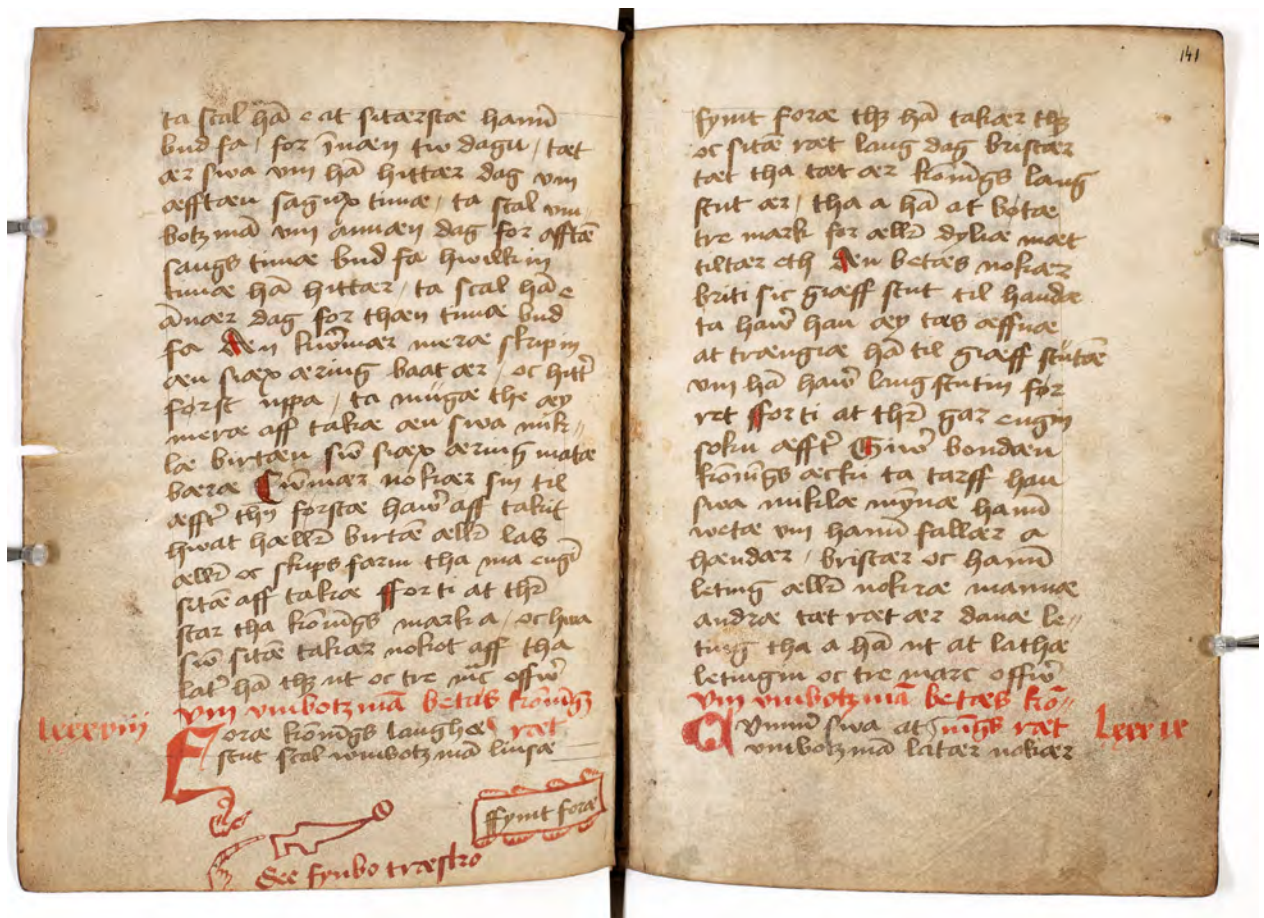 ta scal hā e at sitærstæ hanū
bud fa / for īnæn tw dagu / tæt
ær swa vm hā hittær dag vm
æfftæn sagnx timæ / ta scal vm
botz mā vm annæn dag for afftā
sangs timæ bud fa hwilkin
timæ hā hittær / ta scal hā e
ānær dag for thæn timæ bud
fa Aen kūmær meræ skip in
æn siæx æring baat ær / oc hitt
forst uppa / ta mugæ the æy
meræ aff takæ æn swa mik〃
læ birtæn sū siæx æring matæ
bæræ Cūmær nokær sin til
æfft thy forstæ haw aff takit
hwat hællr birtæ ællr las
ællr oc skips farm tha ma engī
sitæ aff takæ fforti at thr
star tha konūgs mark a / oc hwa
sū sitæ takær nokot aff tha
lat hā thz ut oc tre mc offw
vm vmbotz mā betæs konūgs
lxxxviij
Foræ konūgs laughæ ræt
scut scal wmbotz mā liusæ
ffymt foræ
See fynbo træsko
141
fymt foræ thz hā takær thz
oc sitæ ræt laug dag bristær
tæt tha tæt ær konīgs laug
scut ær / tha a hā at botæ
tre mark for ællr dyliæ mæt
tiltær eth Aen betæs nokær
briti sic giæff scut til handæ
ta haw han æy tæs æffnæ
at trængiæ hā til giæff scutæ
vm hā haw laug scutin før
ret fforti at thr gar engin
sokn æfft Giw bondæn
konūgs ækiu ta tarff han
swa miklæ mynæ hanū
wetæ vm hanū fallær a
hændær / bristær oc hanū
leting ællr nokræ mannæ
andræ tæt ræt ær danæ le〃
ting tha a hā ut at lathæ
letingin oc tre marc offw
vm vmbotz mā betæs kō〃
Cvmmū swa at nīgs ræt
lxxxix
vmbotz mā latær nokær